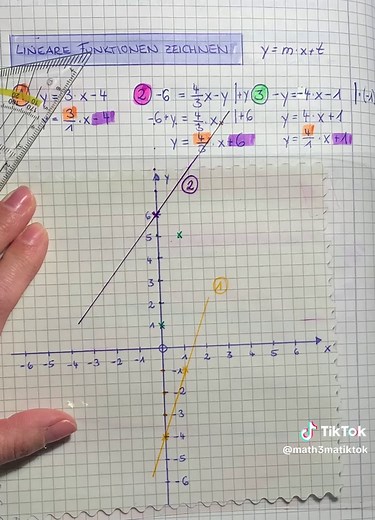 LINEARE FUNKTIONEN ZEICHNEN y = m·x+t
1 y = 3·x-4 2 -6 = 4/3x-y |+y 3 -y=-4·x-1 |·(-1)
= 3/1·x-4 -6+y = 4/3·x |+6 y = 4·x+1
y = 4/3·x+6 y = 4/1·x+1
y
2
6
5
4
3
2
1
1
-6 -5 -4 -3 -2 -1 1 2 3 4 5 6 x
-1
-2
-3
-4
-5
-6
TikTok
@math3matiktok